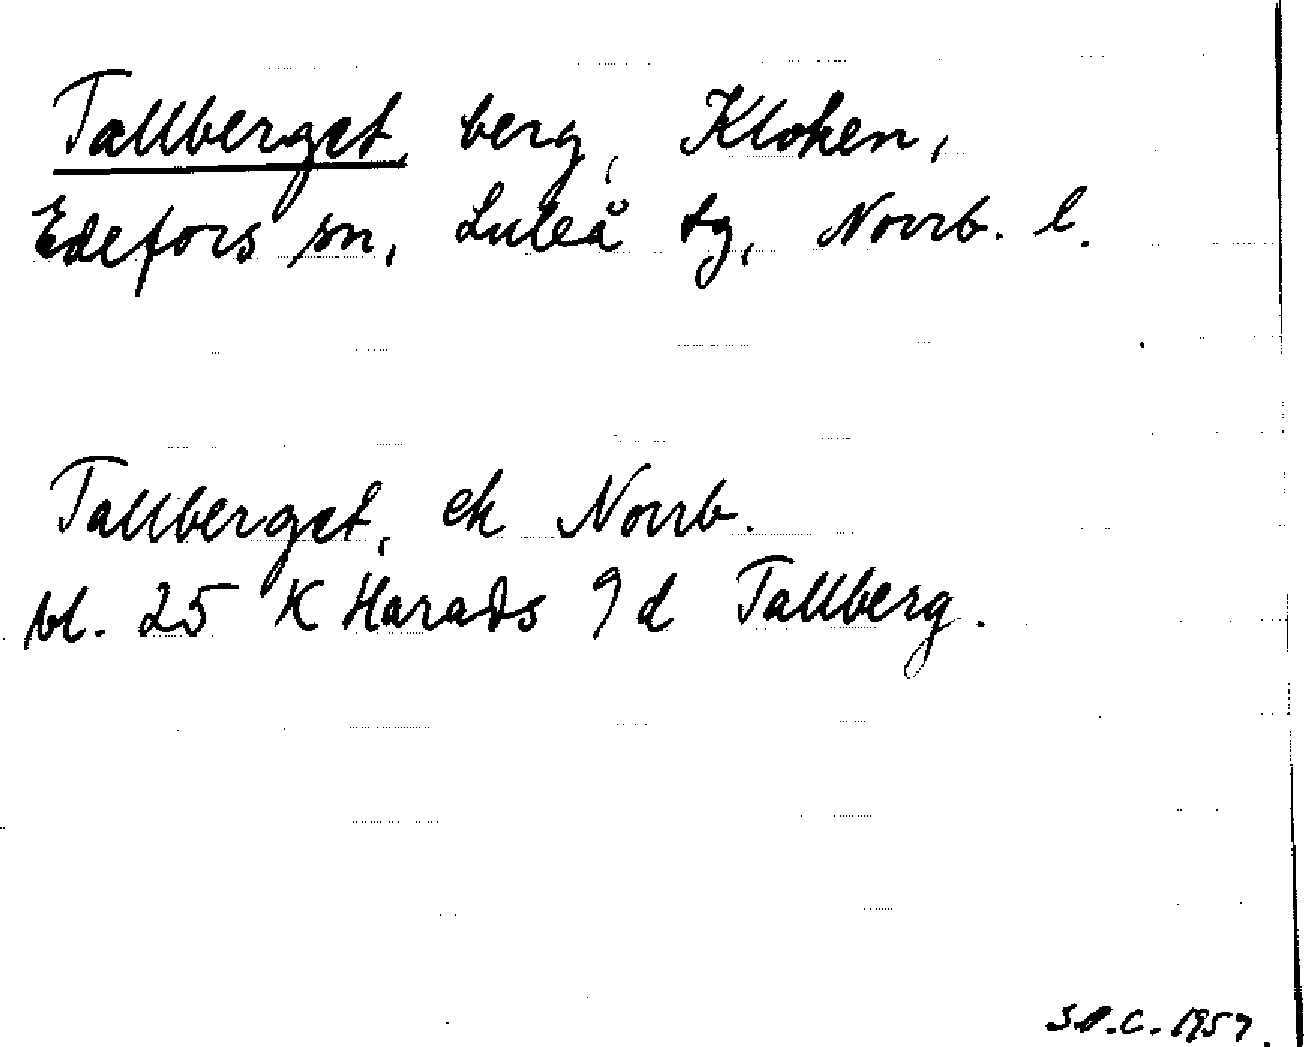 Tallberget, berg, Kloken,
Edefors sn, Luleå tg, Norrb. l.
Tallberget, ek Norrb.
bl. 25 K Harads 9 d Tallberg.
S.O.C. 1957.